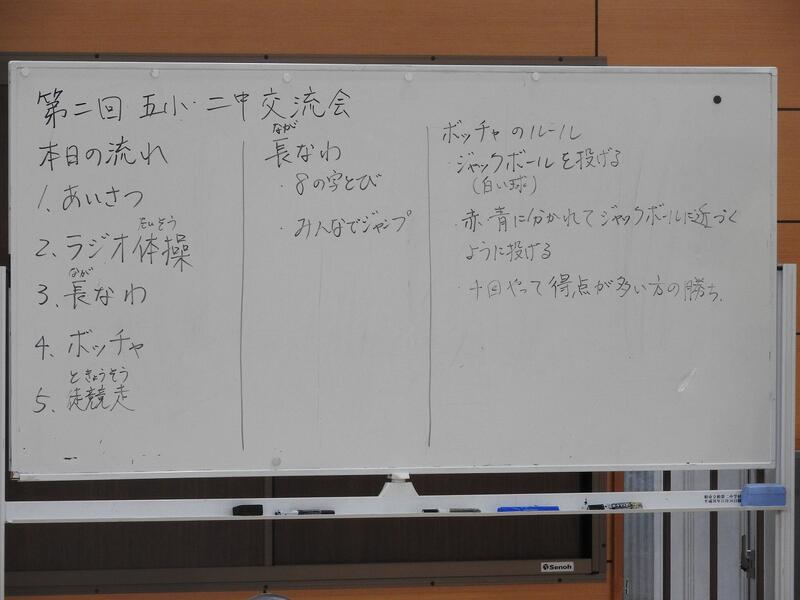 第二回 五小・二中 交流会
本日の流れ
1. あいさつ
たいそう
2. ラジオ体操
なが
3. 長なわ
4. ボッチャ
ときょうそう
5. 徒競走
なが
長なわ
・8の字とび
・みんなでジャンプ
ボッチャのルール
・ジャックボールを投げる
(白い球)
・赤・青に分かれてジャックボールに近づく
ように投げる
・十回やって得点が多い方の勝ち.
Senoh